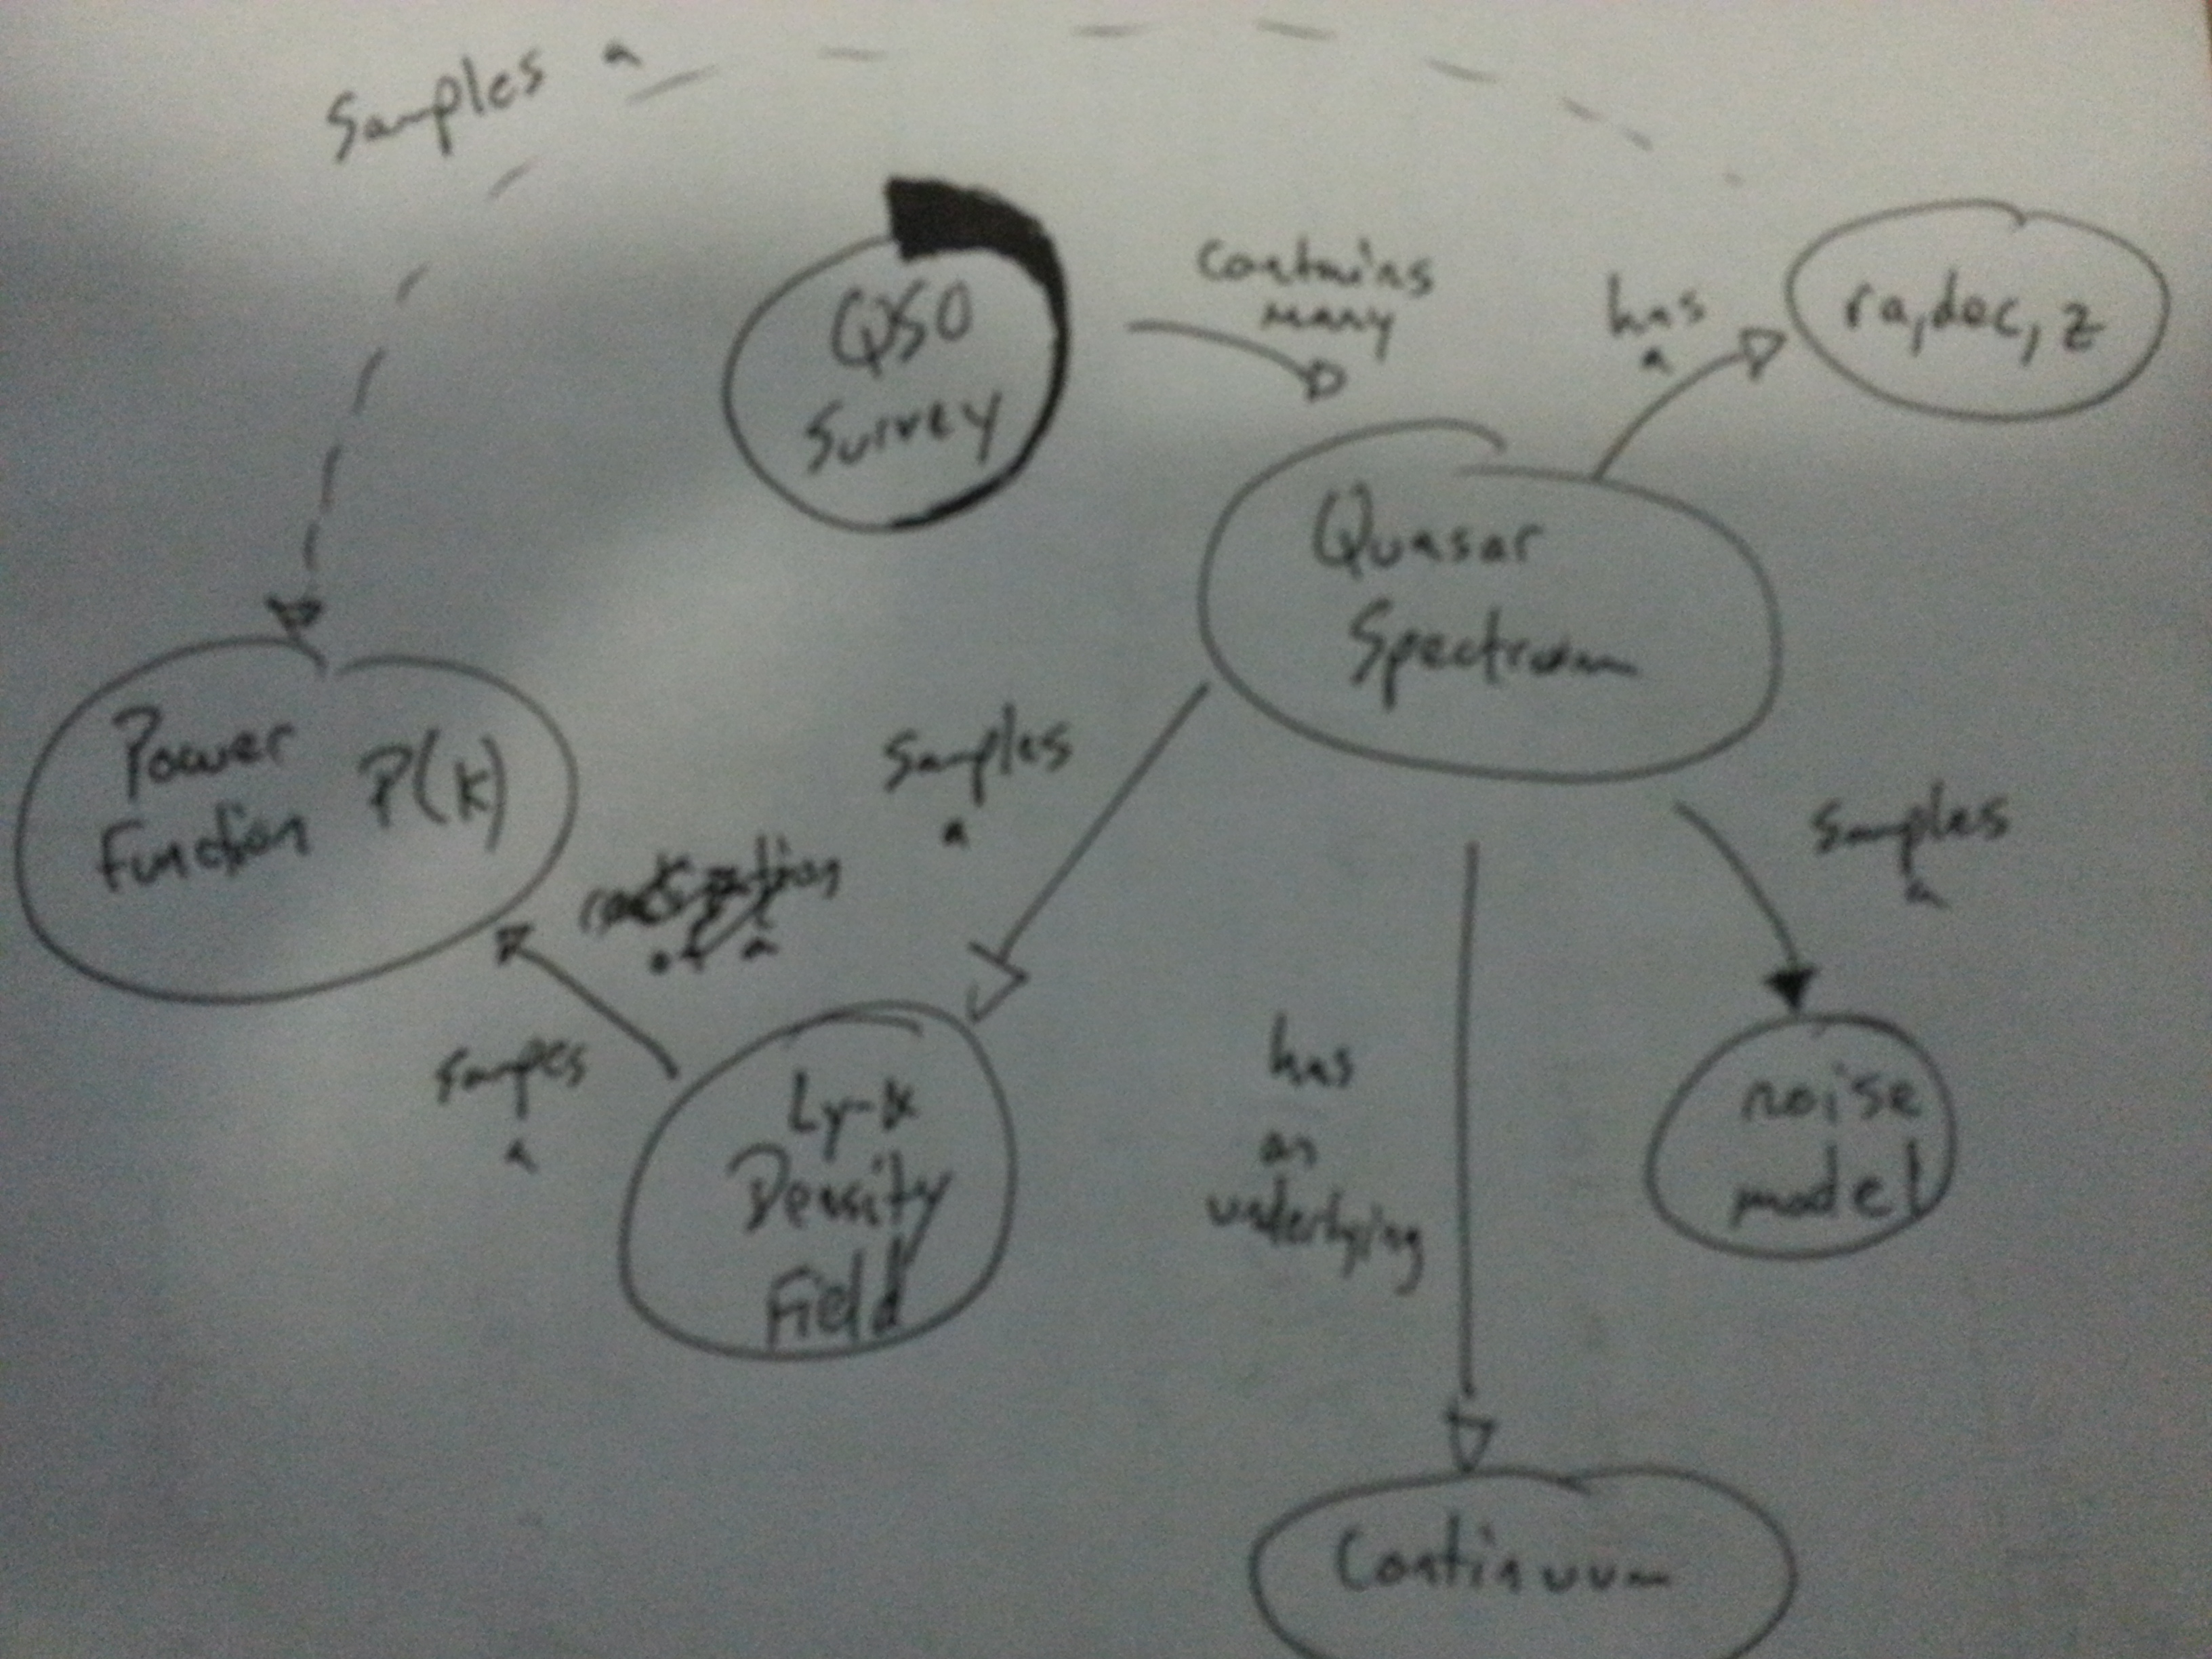 Samples a
QSO
Survey
contains
many
has
a
ra, dec, z
Quasar
Spectrum
Power
Function P(k)
Samples
a
Samples
a
of a
Sampes
a
Ly-α
Density
Field
has
an
underlying
noise
model
Continuum